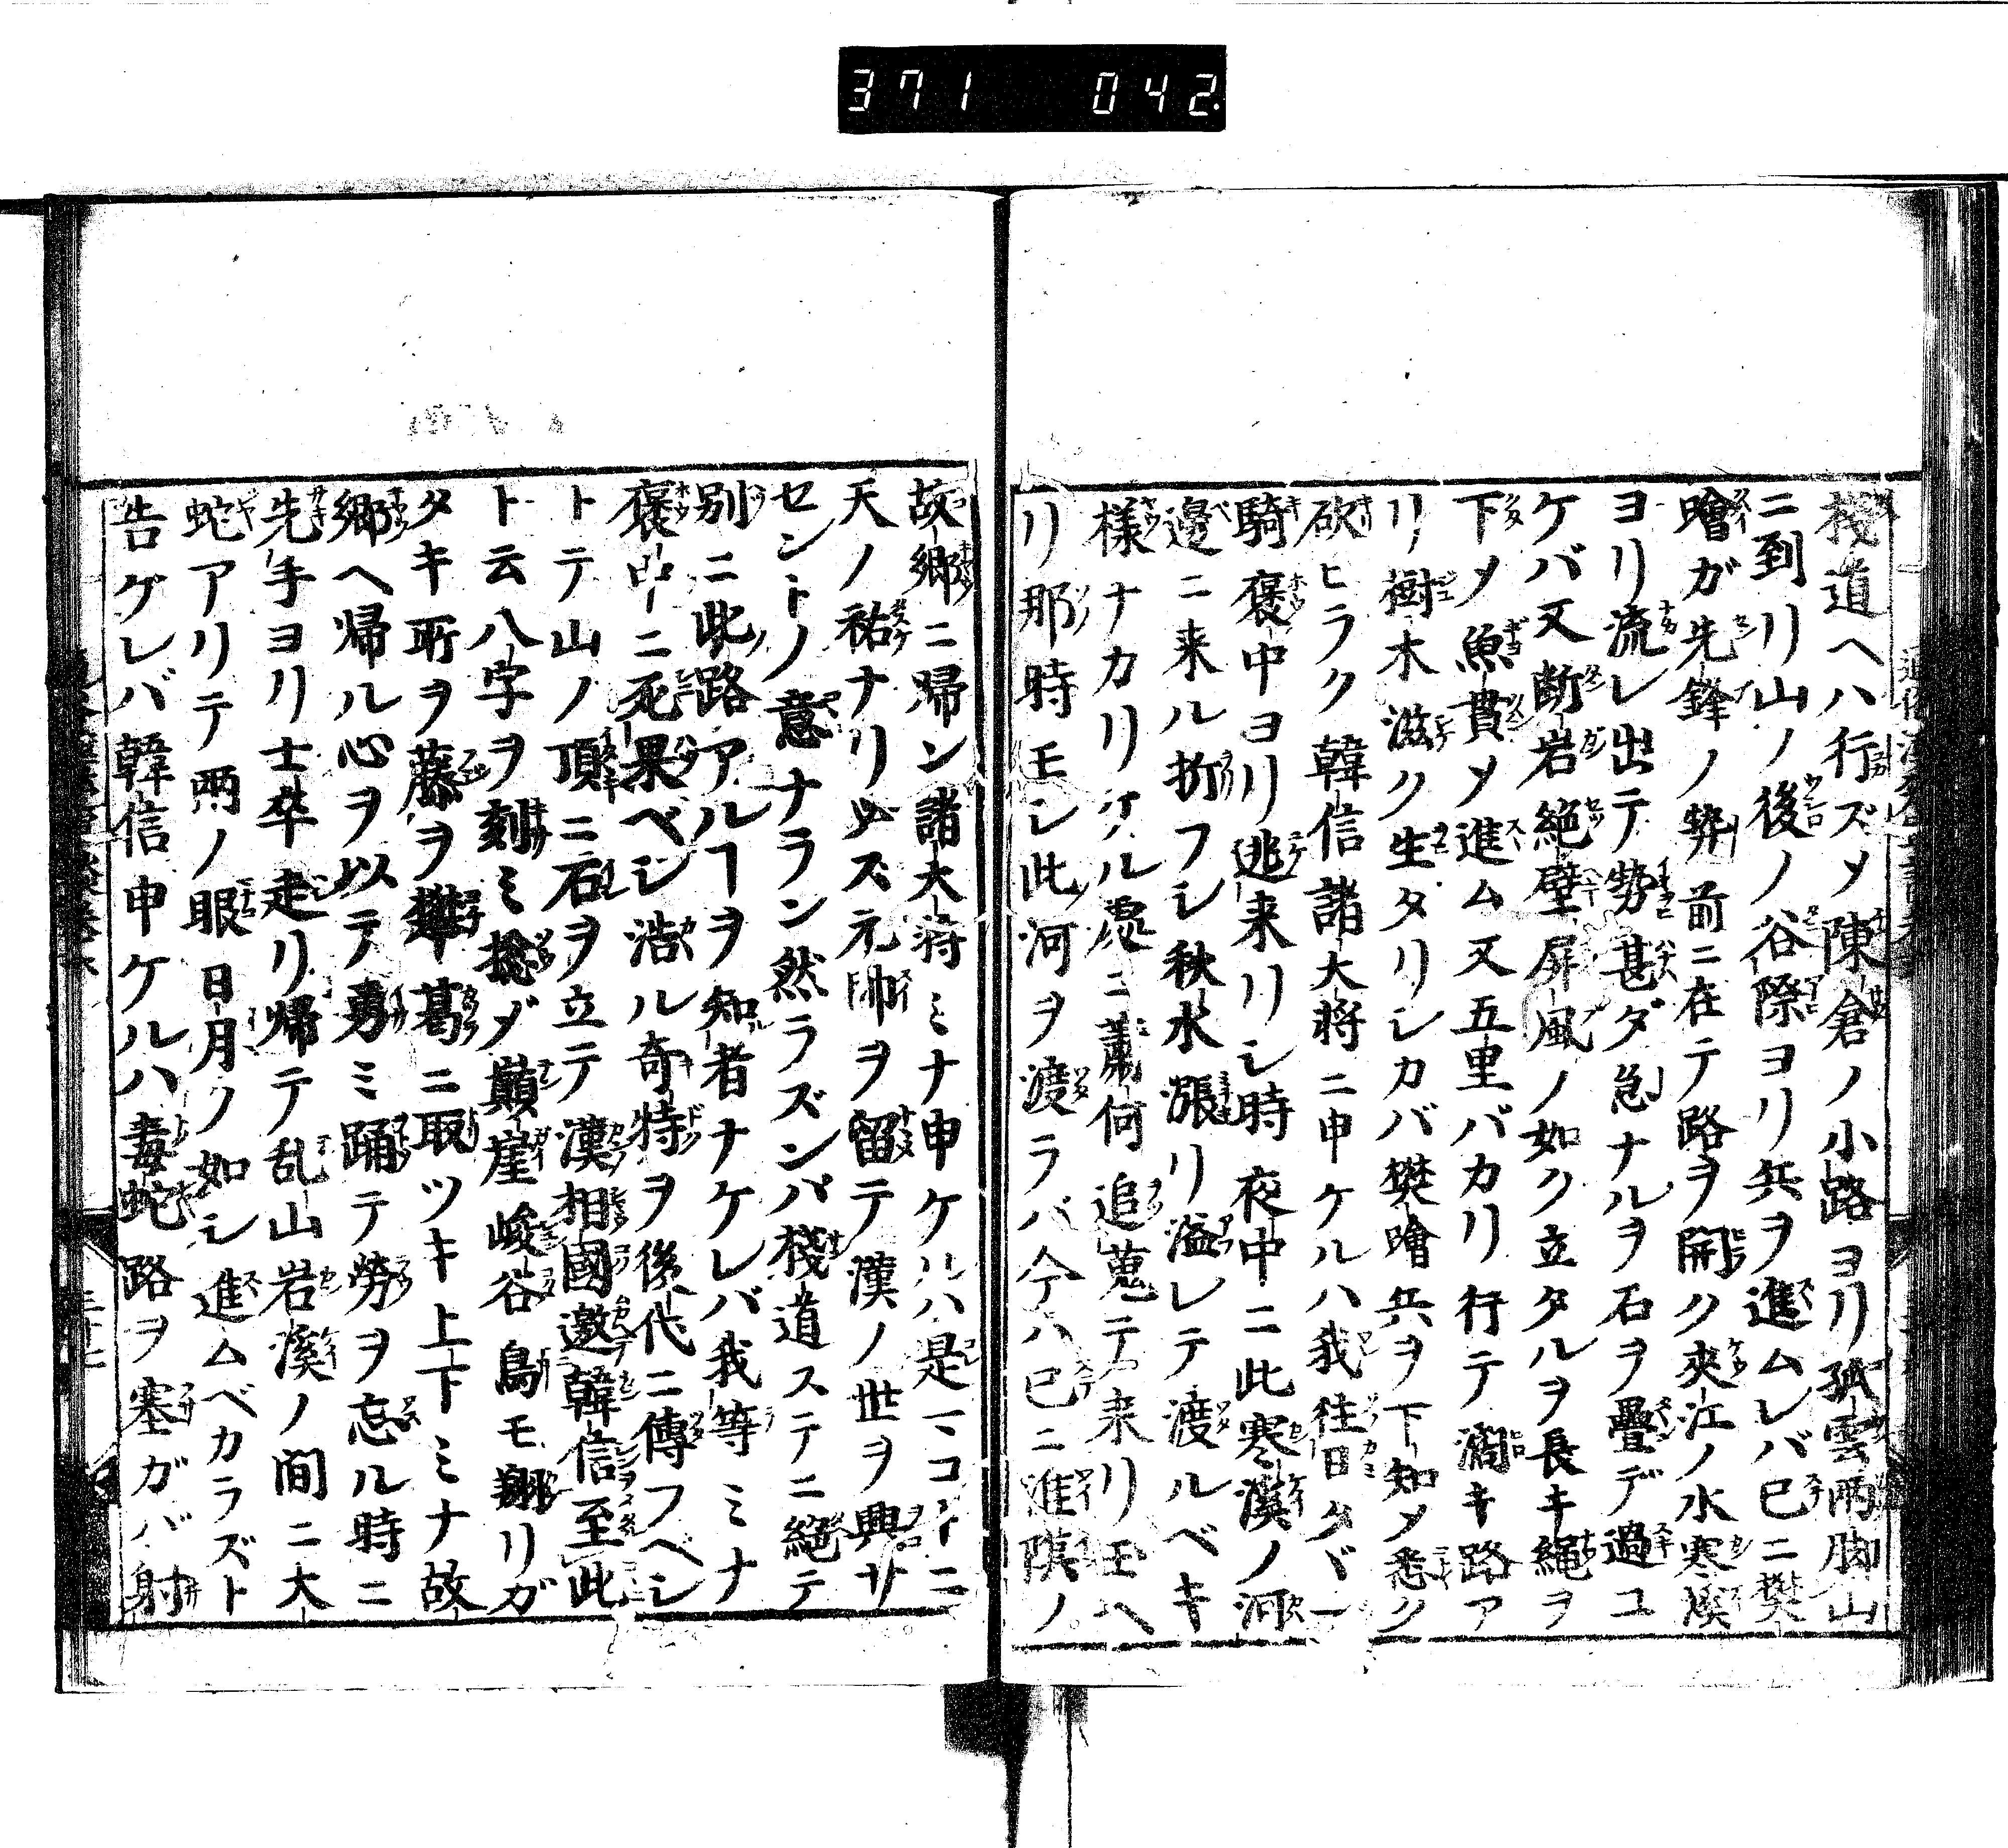 371 042
棧道ヘハ行ズメ陳倉ノ小路ヨリ孤雲兩脚山
ニ到リ山ノ後ノ谷際ヨリ兵ヲ進ムレバ已ニ樊
噲ガ先鋒ノ勢前ニ在テ路ヲ開ク夾江ノ水寒溪
ヨリ流レ出テ勢甚ダ急ナルヲ石ヲ疊デ過ユ
ケバ又断岩絶壁屏風ノ如ク立タルヲ長キ繩ヲ
下メ魚貫メ進ム又五里バカリ行テ濶キ路ア
リ樹木滋ク生タリシカバ樊噲兵ヲ下知メ悉ク
砍ヒラク韓信諸大将ニ申ケルハ我往日タヾ一
騎褒中ヨリ逃来リシ時夜中ニ此寒溪ノ河
邊ニ来ル折フシ秋水漲リ溢レテ渡ルベキ
様ナカリケル處ニ蕭何追蒐テ来リ玉ヘ
リ那時モシ此河ヲ渡ラバ今ハ已ニ淮陰ノ
故郷ニ帰ン諸大将ミナ申ケルハ是マコトニ
天ノ祐ナリ必ズ元帥ヲ留テ漢ノ世ヲ興サ
セントノ意ナラン然ラズンバ棧道ステニ絶テ
別ニ此路アルヿヲ知者ナケレバ我等ミナ
褒中ニ死果ベシ浩ル奇特ヲ後代ニ傳フベシ
トテ山ノ頂ニ石ヲ立テ漢相國邀韓信至此
ト云八字ヲ刻ミ捴ダ巓崖峻谷鳥モ翔リガ
タキ所ヲ藤ヲ攀葛ニ取ツキ上下ミナ故
郷ヘ帰ル心ヲ以テ勇ミ踊テ勞ヲ忘ル時ニ
先手ヨリ士卒走リ帰テ乱山岩溪ノ間ニ大
蛇アリテ兩ノ眼日月ノ如シ進ムベカラズト
告ゲレバ韓信申ケルハ毒蛇路ヲ塞ガバ射